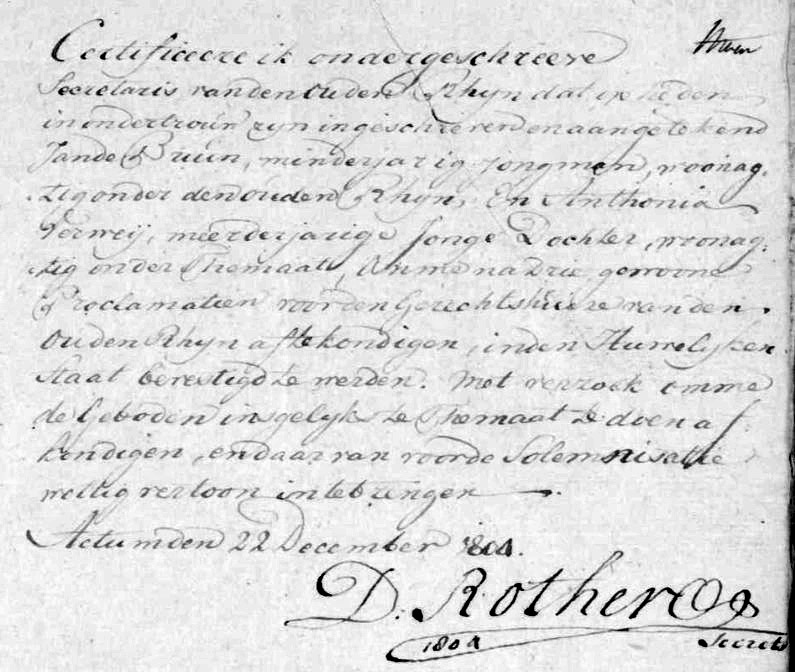 Certificeere ik ondergeschreeve
Secretaris van den Ouden Rhyn dat op heden
in ondertrouw zyn ingeschreven en aangetekend
Jan de Bruin, minderjarig jongman, woonag-
tig onder den ouden Rhyn, En Anthonia
Verweij, meerderjarige Jonge Dochter, woonag-
tig onder Themaat, omme na Drie gewoone
Proclamatien voor den Gerechtshuize van den
Ouden Rhyn af te kondigen, in den Huwelyken
Staat bevestigd te werden. Met verzoek omme
de Geboden insgelyk te Themaat te doen af-
kondigen, en daar van voor de Solemnisatie
wettig vertoon in te brengen.
Actum den 22 December 1804.
D. Rothero
1804 Secrets